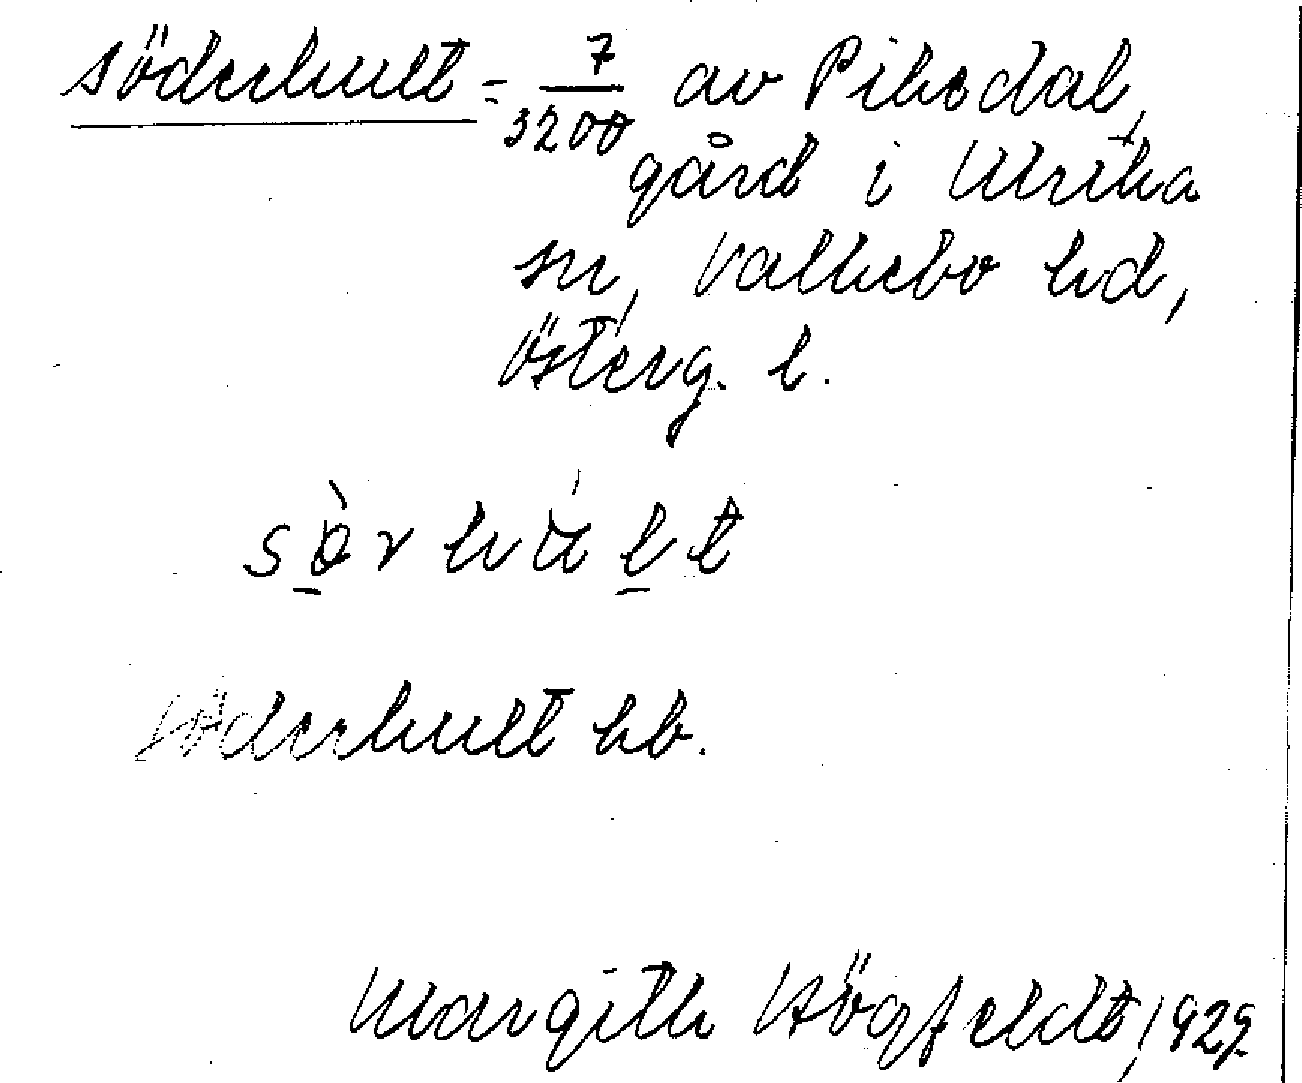 Söderhult = 7/3200 av Piksdal,
gård i Ulrika
sn, Valkebo hd,
Österg. l.
sə̀rhúlt
Söderhult hb.
Margith Högfeldt, 1929